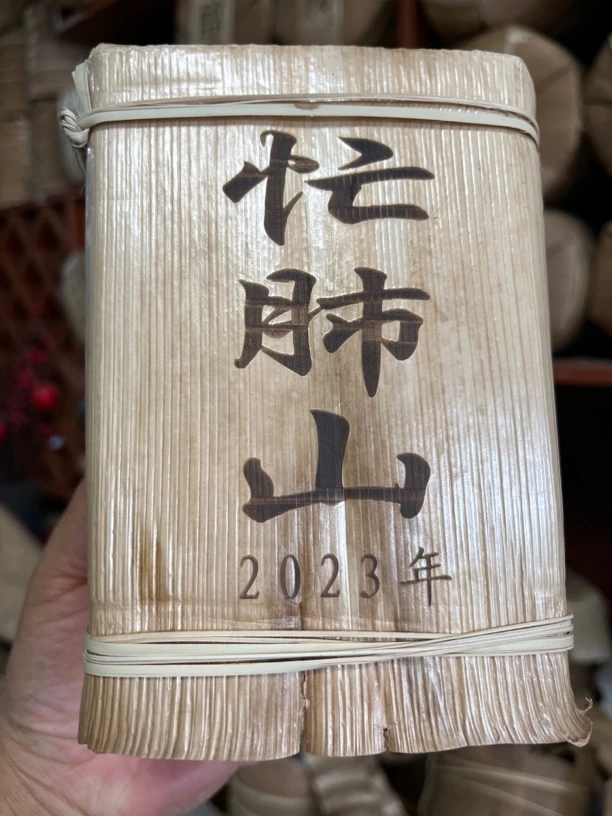 忙肺山
2023年